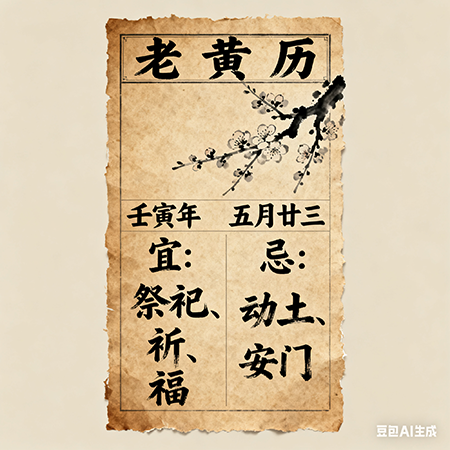 老黄历
壬寅年 五月廿三
宜：
祭祀、
祈、
福
忌：
动土、
安门
豆包AI生成